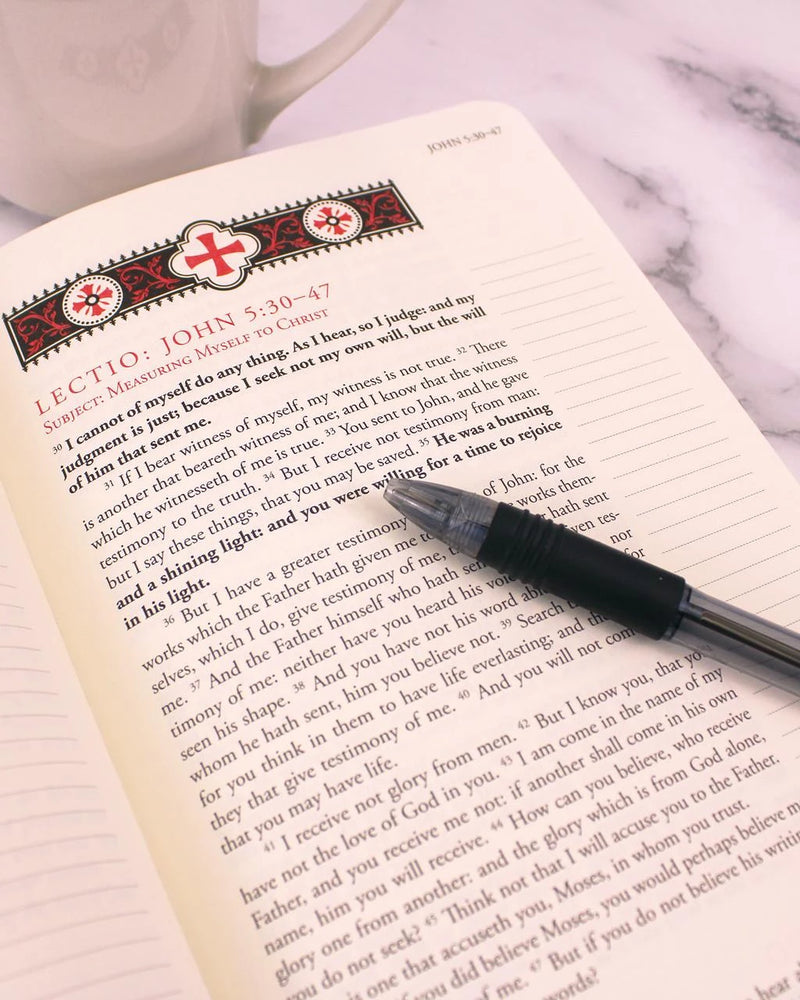 JOHN 5:30–47
LECTIO: JOHN 5:30–47
SUBJECT: MEASURING MYSELF TO CHRIST
30 I cannot of myself do any thing. As I hear, so I judge: and my
judgment is just; because I seek not my own will, but the will
of him that sent me.
31 If I bear witness of myself, my witness is not true. 32 There
is another that beareth witness of me; and I know that the witness
which he witnesseth of me is true. 33 You sent to John, and he gave
testimony to the truth. 34 But I receive not testimony from man:
but I say these things, that you may be saved. 35 He was a burning
and a shining light: and you were willing for a time to rejoice
in his light.
36 But I have a greater testimony of John: for the
works which the Father hath given me to works them-
selves, which I do, give testimony of me, hath sent
me. 37 And the Father himself who hath ven tes-
timony of me: neither have you heard his nor
seen his shape. 38 And you have not his word for
whom he hath sent, him you believe not. 39 Search
for you think in them to have life everlasting; and
they that give testimony of me. 40 And you will not
that you may have life.
41 I receive not glory from men. 42 But I know you, that
have not the love of God in you. 43 I am come in the name of my
Father, and you receive me not: if another shall come in his own
name, him you will receive. 44 How can you believe, who receive
glory one from another: and the glory which is from God alone,
you do not seek? 45 Think not that I will accuse you to the Father.
is one that accuseth you, Moses, in whom you trust.
you did believe Moses, you would perhaps believe
of me. 47 But if you do not believe his
words?
hear